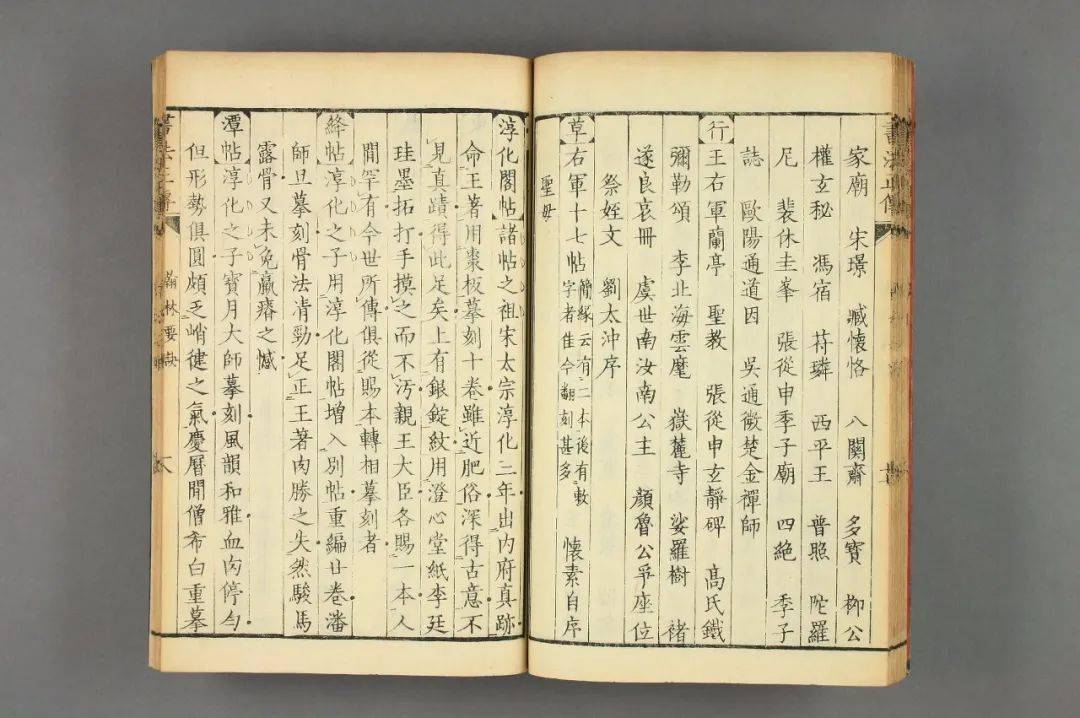 家廟　宋璟　臧懷恪　八關齋　多寶　柳公
權玄秘　馮宿　苻璘　西平王　普照　陀羅
尼　裴休圭峯　張從申季子廟　四絶　季子
誌　歐陽通道因　吳通微楚金禪師
行王右軍蘭亭　聖教　張從申玄靜碑　髙氏鐵
彌勒頌　李北海雲麾　嶽麓寺　娑羅樹　褚
遂良哀冊　虞世南汝南公主　顔魯公爭座位
祭姪文　劉太沖序
草右軍十七帖簡緣云有二本後有敕
字者佳今翻刻甚多　懷素自序
聖母
淳化閣帖諸帖之祖宋太宗淳化三年出内府真跡
命王著用棗板摹刻十卷雖近肥俗深得古意不
見真蹟得此足矣上有銀錠紋用澄心堂紙李廷
珪墨拓打手摸之而不汚親王大臣各賜一本人
間罕有今世所傳俱從賜本轉相摹刻者
絳帖淳化之子用淳化閣帖増入别帖重編廿卷潘
師旦摹刻骨法清勁足正王著肉勝之失然駿馬
露骨又未免羸瘠之憾
潭帖淳化之子寶月大師摹刻風韻和雅血肉停勻
但形勢俱圓頗乏峭健之氣慶曆間僧希白重摹
翰林要訣